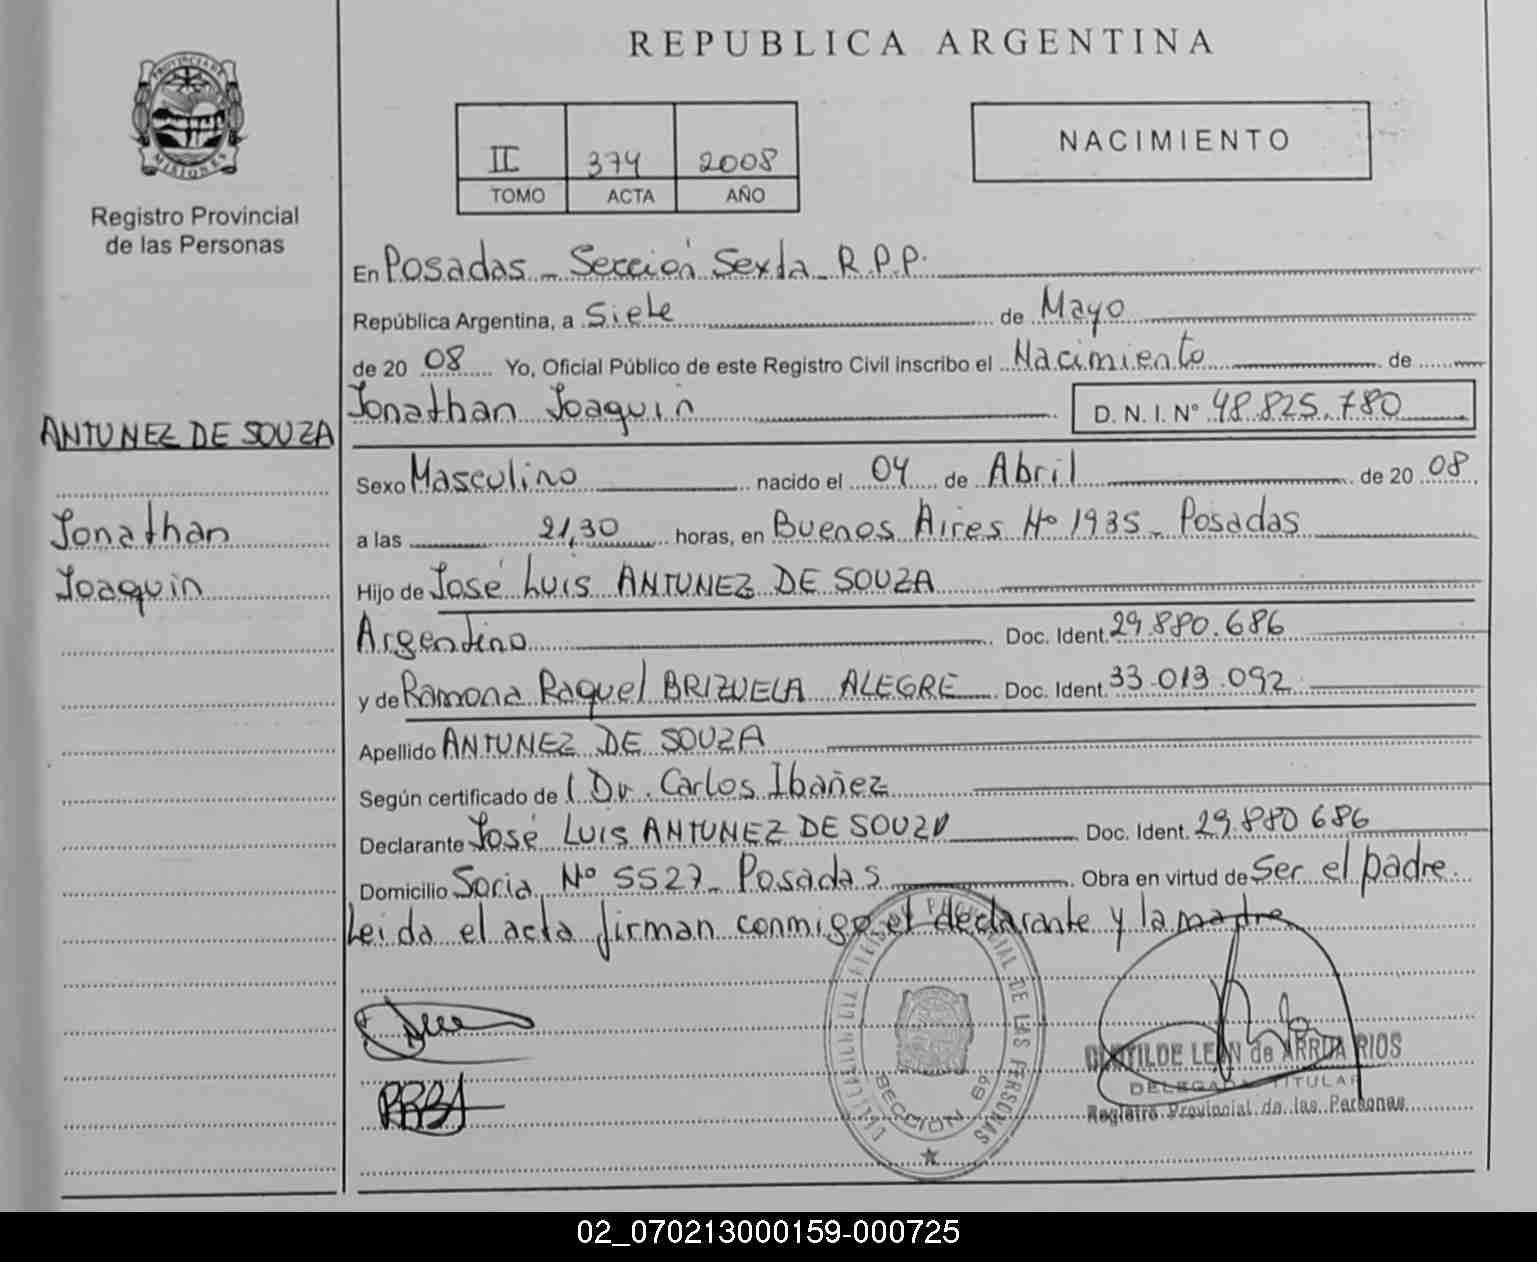 REPUBLICA ARGENTINA
PROVINCIA DE
MISIONES
Registro Provincial
de las Personas
II 374 2008
TOMO ACTA AÑO
NACIMIENTO
En Posadas - Sección Sexta - R.P.P.
República Argentina, a Siete de Mayo
de 20 08 Yo, Oficial Público de este Registro Civil inscribo el Nacimiento de
Jonathan Joaquin D. N. I. Nº 48.825.780
ANTUNEZ DE SOUZA
Sexo Masculino nacido el 04 de Abril de 20 08
Jonathan
a las 21,30 horas, en Buenos Aires Nº 1935 - Posadas
Joaquin
Hijo de José Luis ANTUNEZ DE SOUZA
Argentino Doc. Ident. 29.880.686
y de Ramona Raquel BRIZUELA ALEGRE Doc. Ident. 33.013.092
Apellido ANTUNEZ DE SOUZA
Según certificado de l Dr. Carlos Ibañez
Declarante José Luis ANTUNEZ DE SOUZA Doc. Ident. 29.880.686
Domicilio Soria Nº 5527 - Posadas Obra en virtud de Ser el padre.
Leida el acta firman conmigo el declarante y la madre
DE LAS PERSONAS
SECCION 6º
CLOTILDE LEAN de ARRUA RIOS
DELEGADA TITULAR
Registro Provincial de las Personas
02_070213000159-000725